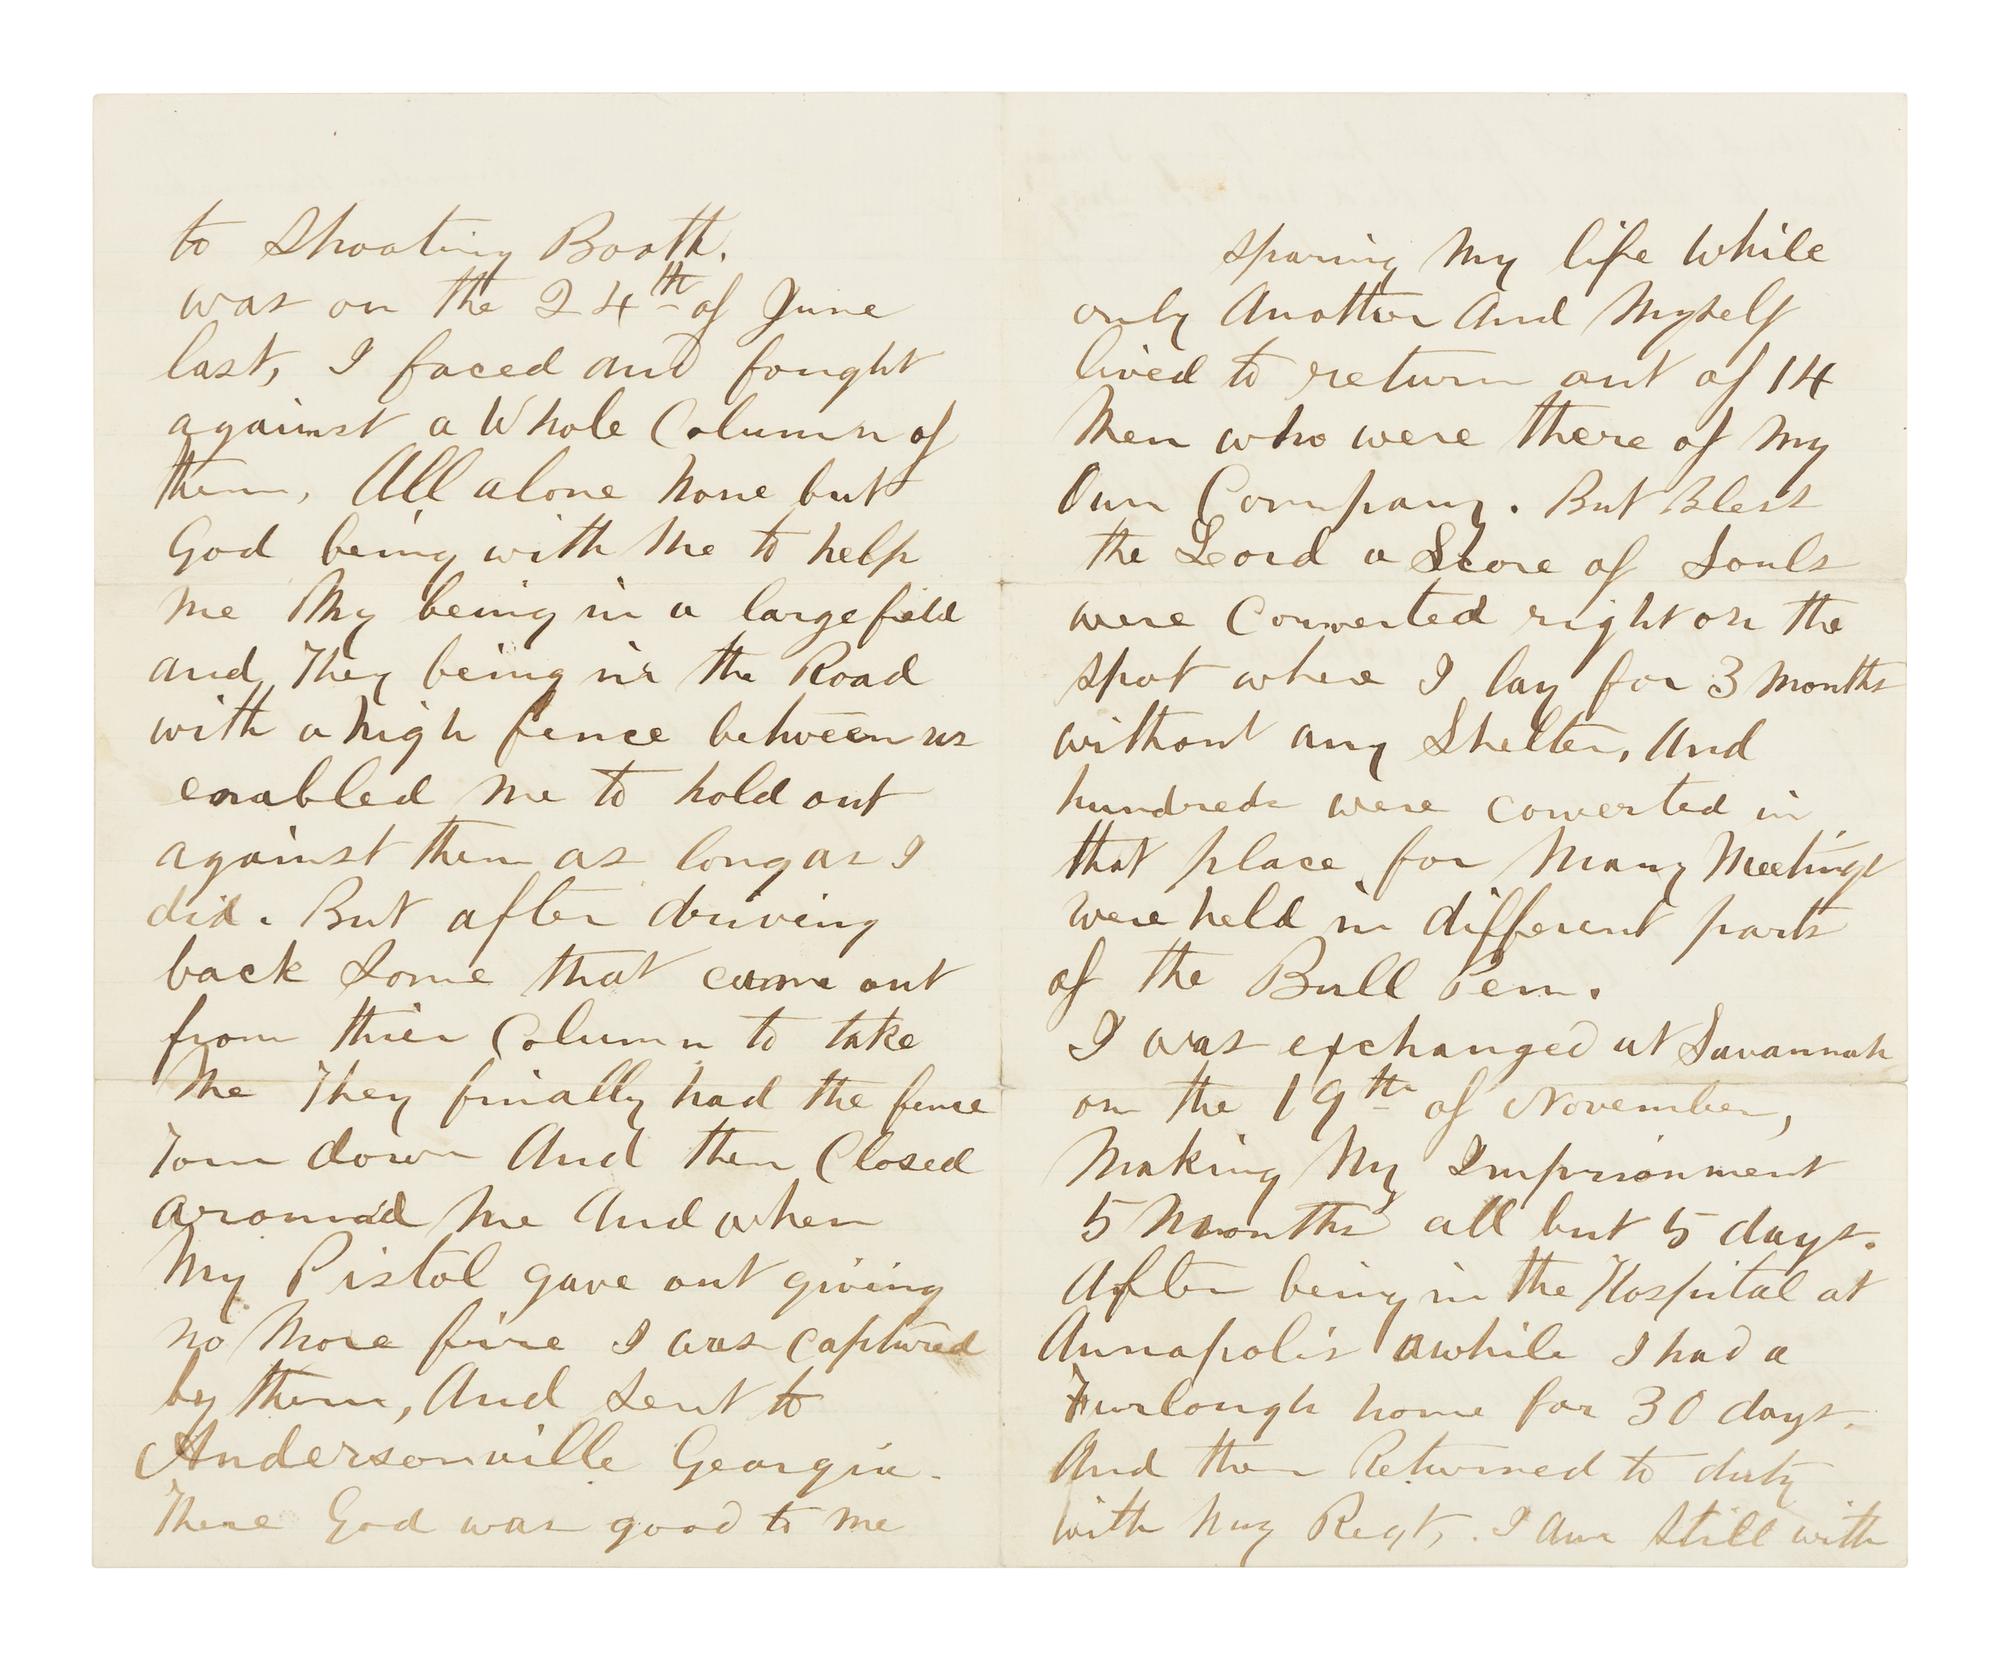 to Shooting Booth.
was on the 24th of June
last, I faced and fought
against a Whole Column of
them, All alone None but
God being with Me to help
me My being in a large field
and They being in the Road
with a high fence between us
enabled me to hold out
against them as long as I
did. But after driving
back Some that came out
from thier Column to take
Me They finially had the fence
Torn down And then Closed
around Me And when
My Pistol gave out giving
no More fire I was captured
by them, And Sent to
Andersonville Georgia.
There God was good to me
sparing My life While
only Another And Myself
lived to return out of 14
Men who were there of My
Own Company. But Bless
the Lord a Score of Souls
were Converted right on the
spot where I lay for 3 Months
without any Shelter, And
hundreds were converted in
that place for Many Meetings
were held in different parts
of the Bull Pen.
I was exchanged at Savannah
on the 19th of November,
Making My Imprisonment
5 Months all but 5 days.
After being in the Hospital at
Annapolis awhile I had a
Furlough home for 30 days.
And then Returned to duty
with my Regt,. I am Still with